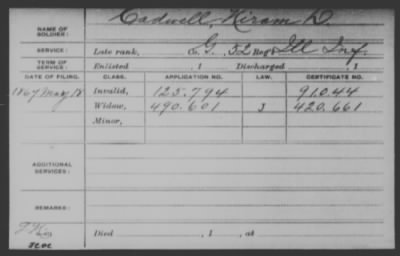 Cadwell, Hiram D
NAME OF SOLDIER:
SERVICE: Late rank, G. 52 Reg't Ill Inf.
TERM OF SERVICE: Enlisted , 1 Discharged , 1
DATE OF FILING. CLASS. APPLICATION NO. LAW. CERTIFICATE NO.
1867 May 18 Invalid, 125.794 91.044
Widow, 490.601 J 420.661
Minor,
ADDITIONAL SERVICES:
REMARKS:
Died , 1 , at